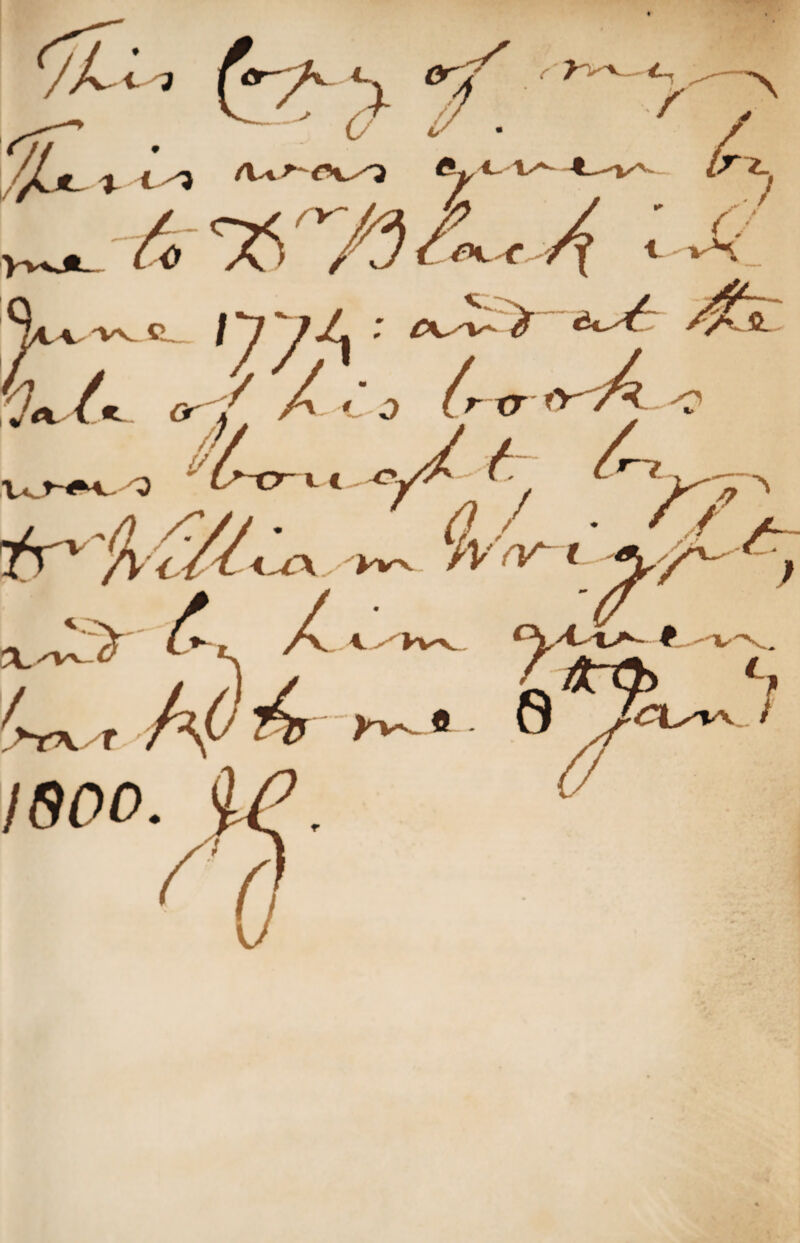 This Copy of my
Thesis was given by
me to Dr Black in
June 1774: and at the
Sale of his books
was bought by
Dr William Wright,
and by him given
back to me 8th Jany
1800. JG.